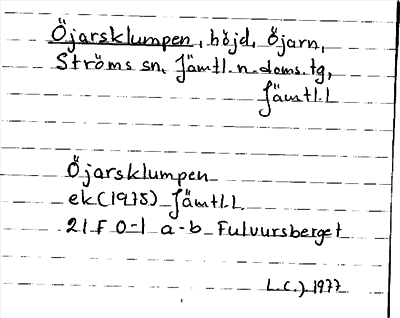 Öjarsklumpen, höjd, Öjarn,
Ströms sn, Jämtl. n. doms. tg,
Jämtl. l
Öjarsklumpen
ek (1975) Jämtl. l.
21 F 0-1 a-b Fulvursberget
L.C.) 1977